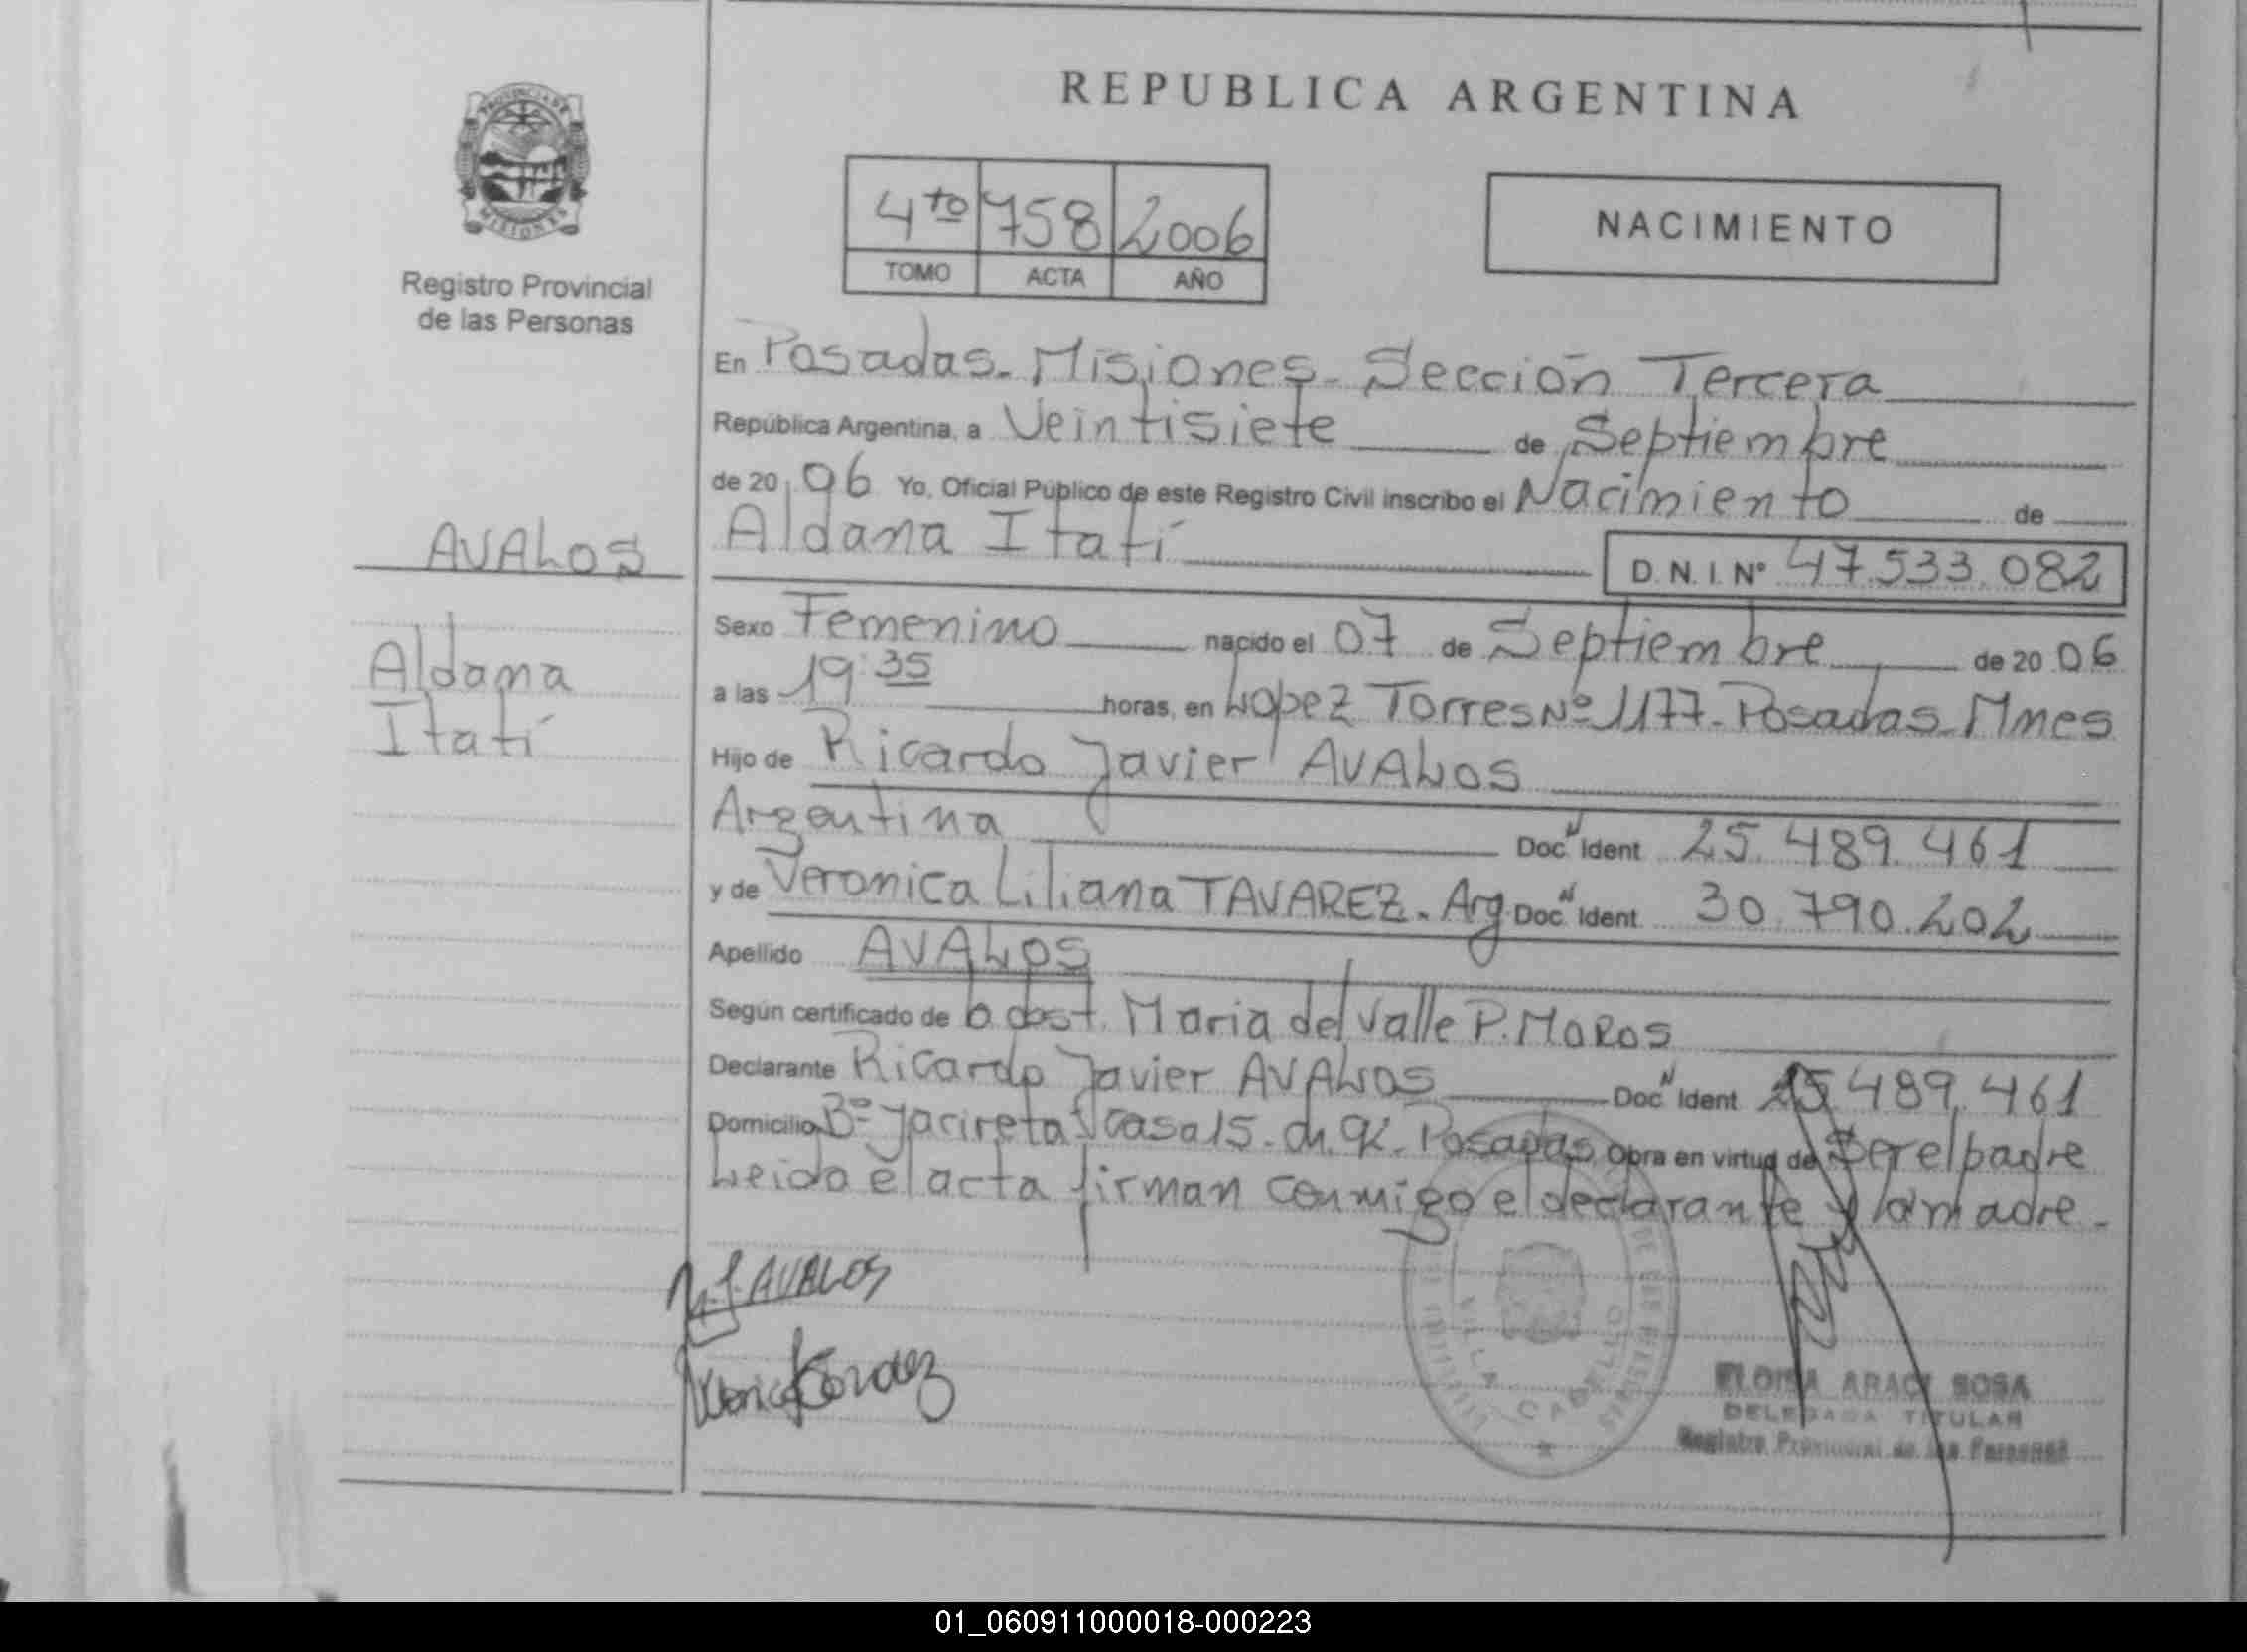 REPUBLICA ARGENTINA
PROVINCIA DE
MISIONES
Registro Provincial
de las Personas
4to 758 2006
TOMO ACTA AÑO
NACIMIENTO
En Posadas - Misiones - Sección Tercera
República Argentina, a Veintisiete de Septiembre
de 20 06 Yo, Oficial Público de este Registro Civil inscribo el Nacimiento de
AVALOS
Aldana Itatí D.N.I. Nº 47.533.082
Aldana
Itatí
Sexo Femenino nacido el 07 de Septiembre de 20 06
a las 19:35 horas, en Lopez Torres Nº 1177 - Posadas - Mnes
Hijo de Ricardo Javier AVALOS
Argentina Doc. N Ident 25.489.461
y de Veronica Liliana TAVAREZ. Arg Doc. N Ident. 30.790.202
Apellido AVALOS
Según certificado de obst. Maria del Valle P. MOROS
Declarante Ricardo Javier AVALOS Doc. N Ident 25.489.461
Domicilio Bº Yacireta casa 15 - Posadas Obra en virtud de Ser el padre
Leido el acta firman conmigo el declarante y la madre -
AVALOS
VILLA CABELLO
ELOISA ARACI SOSA
DELEGADA TITULAR
Registro Provincial de las Personas
01_060911000018-000223